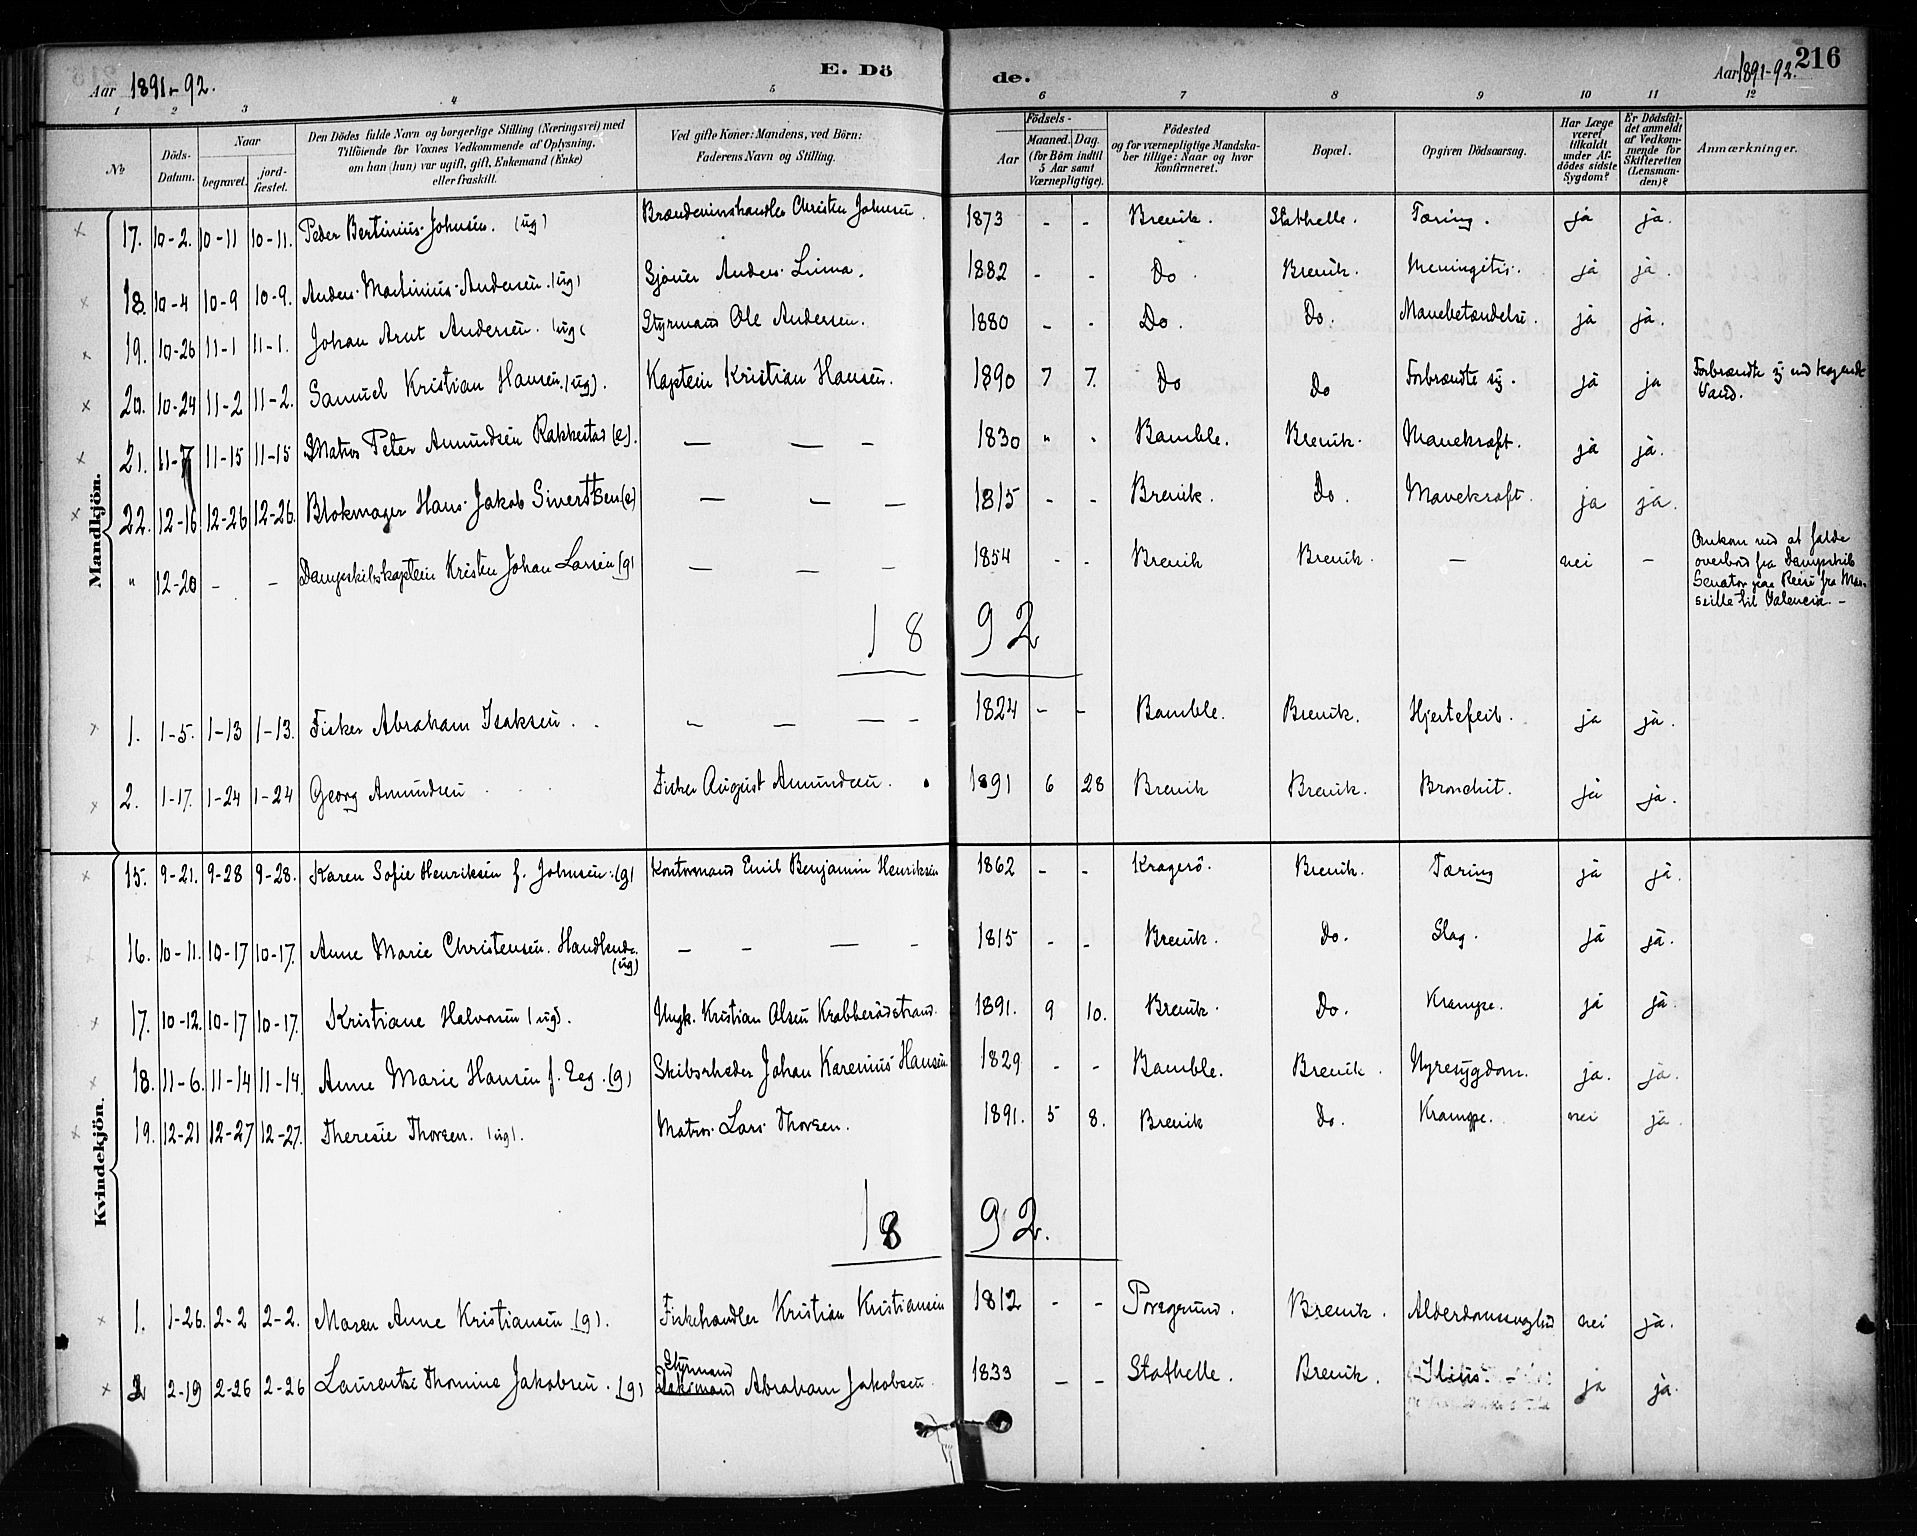 Aar 1891-92. E. Dö de. Aar 1891-92. 216
1 2 3 4 5 6 7 8 9 10 11 12
No Döds-Datum. Naar begravet. jord-fæstet. Den Dödes fulde Navn og borgerlige Stilling (Næringsvei) med Tilföiende for Voxnes Vedkommende af Oplysning, om han (hun) var ugift, gift, Enkemand (Enke) eller fraskilt. Ved gifte Koner: Mandens, ved Börn: Faderens Navn og Stilling. Födsels- Aar Maaned. Dag. (for Börn indtil 5 Aar samt Værnepligtige). Födested og for værnepligtige Mandskaber tillige: Naar og hvor konfirmeret. Bopæl. Opgiven Dödsaarsag. Har Læge været tilkaldt under Afdödes sidste Sygdom? Er Dödsfaldet anmeldt af Vedkommende for Skifteretten (Lensmanden)? Anmærkninger.
Mandkjön.
17. 10-2. 10-11 10-11. Peder Bertinius Johnsen. (ug) Brændevinshandler Christen Johnsen. 1873 - - Brevik. Stathelle. Tæring. ja ja.
18. 10-4 10-9 10-9. Anders Martinius Andersen. (ug) Sjöuer Anders Lima. 1882 - - Do. Brevik. Meningitis. ja ja.
19. 10-26 11-1 11-1. Johan Arnt Andersen. (ug) Styrmand Ole Andersen. 1880 - - Do. Do. Mavebetændelse. ja ja.
20. 10-24 11-2 11-2. Samuel Kristian Hansen. (ug). Kaptein Kristian Hansen. 1890 7 7. Do Do Forbrændte sig. ja ja Forbrændte sig ved kogende Vand.
21. 11-7 11-15 11-15 Matros Peter Amundsen Rakkestad (e). — — — 1830 " " Bamble. Brevik. Mavekræft. ja ja.
22. 12-16 12-26 12-26. Blokmager Hans Jakob Sivertsen (e) — — — 1815 - - Brevik. Do. Mavekræft. ja ja.
" 12-20 - - Dampskibskaptein Kristen Johan Larsen (g) — — — 1854 - - Brevik Brevik. — nei — Omkom ved at falde
overbord fra Dampskib
Senator paa Reise fra Mar-
seille til Valencia. -
18 92
1. 1-5. 1-13 1-13. Fisker Abraham Isaksen. - — — - 1824 - - Bamble. Brevik. Hjertefeil. ja ja.
2. 1-17. 1-24 1-24 Georg Amundsen Fisker August Amundsen. 1891 6 28 Brevik Brevik. Bronchit. ja ja.
Kvindekjön.
15. 9-21. 9-28 9-28. Karen Sofie Henriksen f. Johnsen. (g) Kontormand Emil Benjamin Henriksen 1862 - - Kragerö. Brevik. Tæring ja ja.
16. 10-11. 10-17 10-17. Anne Marie Christensen. Handlende. (ug) — - — - 1815 - - Brevik. Do. Slag. ja ja.
17. 10-12. 10-17 10-17. Kristiane Halvorsen (ug). Ungk. Kristian Olsen Krabberödstrand. 1891. 9 10. Brevik. Do. Krampe. ja ja.
18. 11-6. 11-14 11-14. Anne Marie Hansen f. Eeg. (g) Skibsrheder Johan Karenius Hansen. 1829 - - Bamble. Brevik. Nyresygdom. ja. ja.
19. 12-21 12-27 12-27. Theresie Thorsen. (ug). Matros Lars Thorsen. 1891. 5 8. Brevik Do. Krampe. nei ja.
18 92.
1. 1-26. 2-2 2-2. Maren Anne Kristiansen (g). Fiskehandler Kristian Kristiansen 1812 - - Porsgrund. Brevik. nei ja.
2 2-19 2-26 2-26 Laurentse Thomine Jakobsen. (g) Styrmand Abraham Jakobsen. 1833 - - Stathelle. Brevik. Ilius. - ja ja.